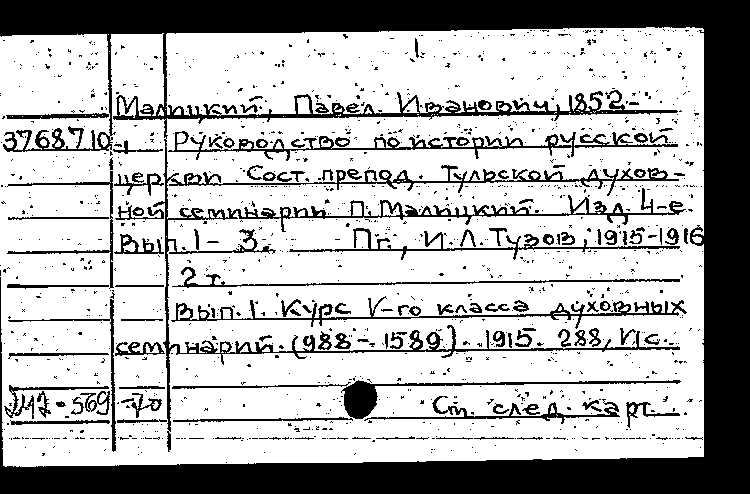 1
Малицкий, Павел Иванович, 1852-
3768710-1 Руководство по истории русской
церкви Сост. препод. Тульской духов-
ной семинарии П. Малицкий. Изд. 4-е
Вып. 1-3. Пг., И.Л. Тузов, 1915-1916
2 т.
Вып. 1. Курс V-го класса духовных
семинарий. (988-1589). 1915. 288, VI с.
569 -70 См. след. карт.